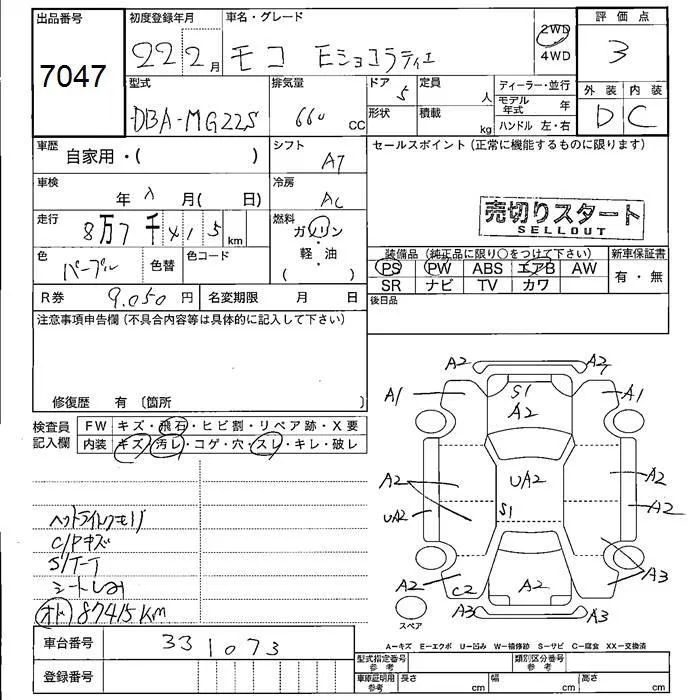 出品番号
7047
初度登録年月
22 2月
車名・グレード
モコ Eショコラティエ
2WD
4WD
評価点
3
型式
DBA-MG22S
排気量
660 CC
ドア
5
形状
定員
人
積載
kg
ディーラー・並行
モデル年式 年
ハンドル 左・右
外装 内装
D C
車歴
自家用・( )
シフト
AT
セールスポイント(正常に機能するものに限ります)
車検
年 月( 日)
冷房
AC
売切りスタート
SELLOUT
走行
8万7千415 km
燃料
ガソリン
・
軽・油
( )
色
パープル
色替
色コード
装備品(純正品に限り○をつけて下さい)
新車保証書
PS PW ABS エアB AW
SR ナビ TV カワ
有・無
R券
9,050 円
名変期限 月 日
後日品
注意事項申告欄(不具合内容等は具体的に記入して下さい)
修復歴 有〔箇所 〕
検査員記入欄
FW キズ・飛石・ヒビ割・リペア跡・X要
内装 キズ・汚レ・コゲ・穴・スレ・キレ・破レ
C/Pキズ
S/T-T
オド 87415Km
A2 A2
A1 S1 A1
A2
A2 UA2 A2
UA2 S1 A2
A2 C2 A2 A3
A3 A3
スペア
A=キズ E=エクボ U=凹み W=補修跡 S=サビ C=腐食 XX=交換済
車台番号
331073
型式指定番号 参考
類別区分番号 参考
登録番号
車庫証明用 参考
長さ cm
幅 cm
高さ cm